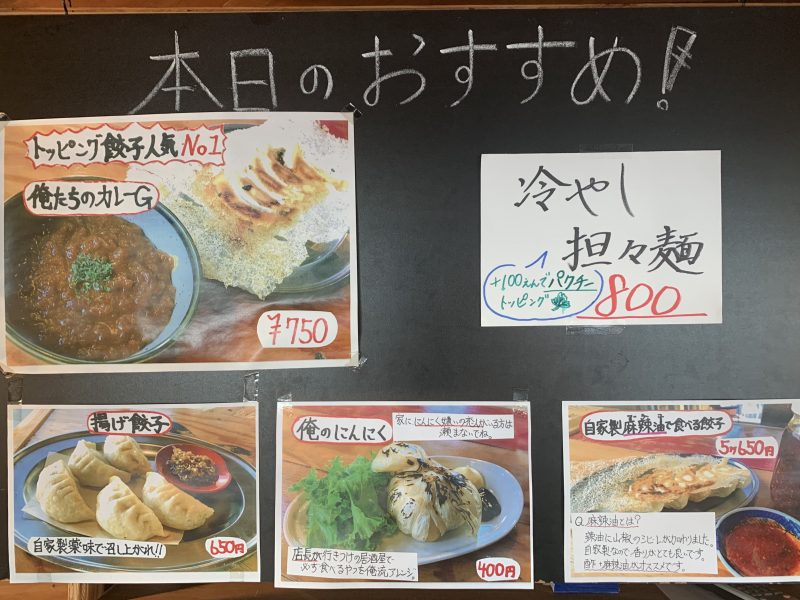 本日のおすすめ!
トッピング餃子人気No1
俺たちのカレーG
¥750
冷やし
担々麺
+100えんでパクチー
トッピング
800
揚げ餃子
自家製薬味で召し上がれ!!
650円
俺のにんにく
家ににんにく嫌いの恋人がいる方は
頼まないでね。
店長が行きつけの居酒屋で
必ず食べるやつを俺流アレンジ。
400円
自家製麻辣油で食べる餃子
5ヶ650円
Q.麻辣油とは?
辣油に山椒のシビレが加わりました。
自家製なので香りがとても良いです。
酢+麻辣油がオススメです。